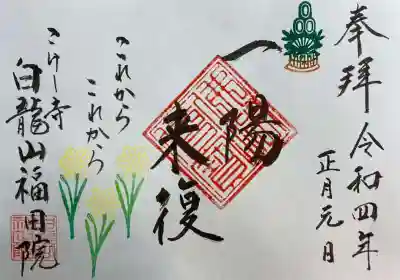 奉拝
令和四年
正月元日
陽
来復
これから
これから
こけし寺
白龍山福田院